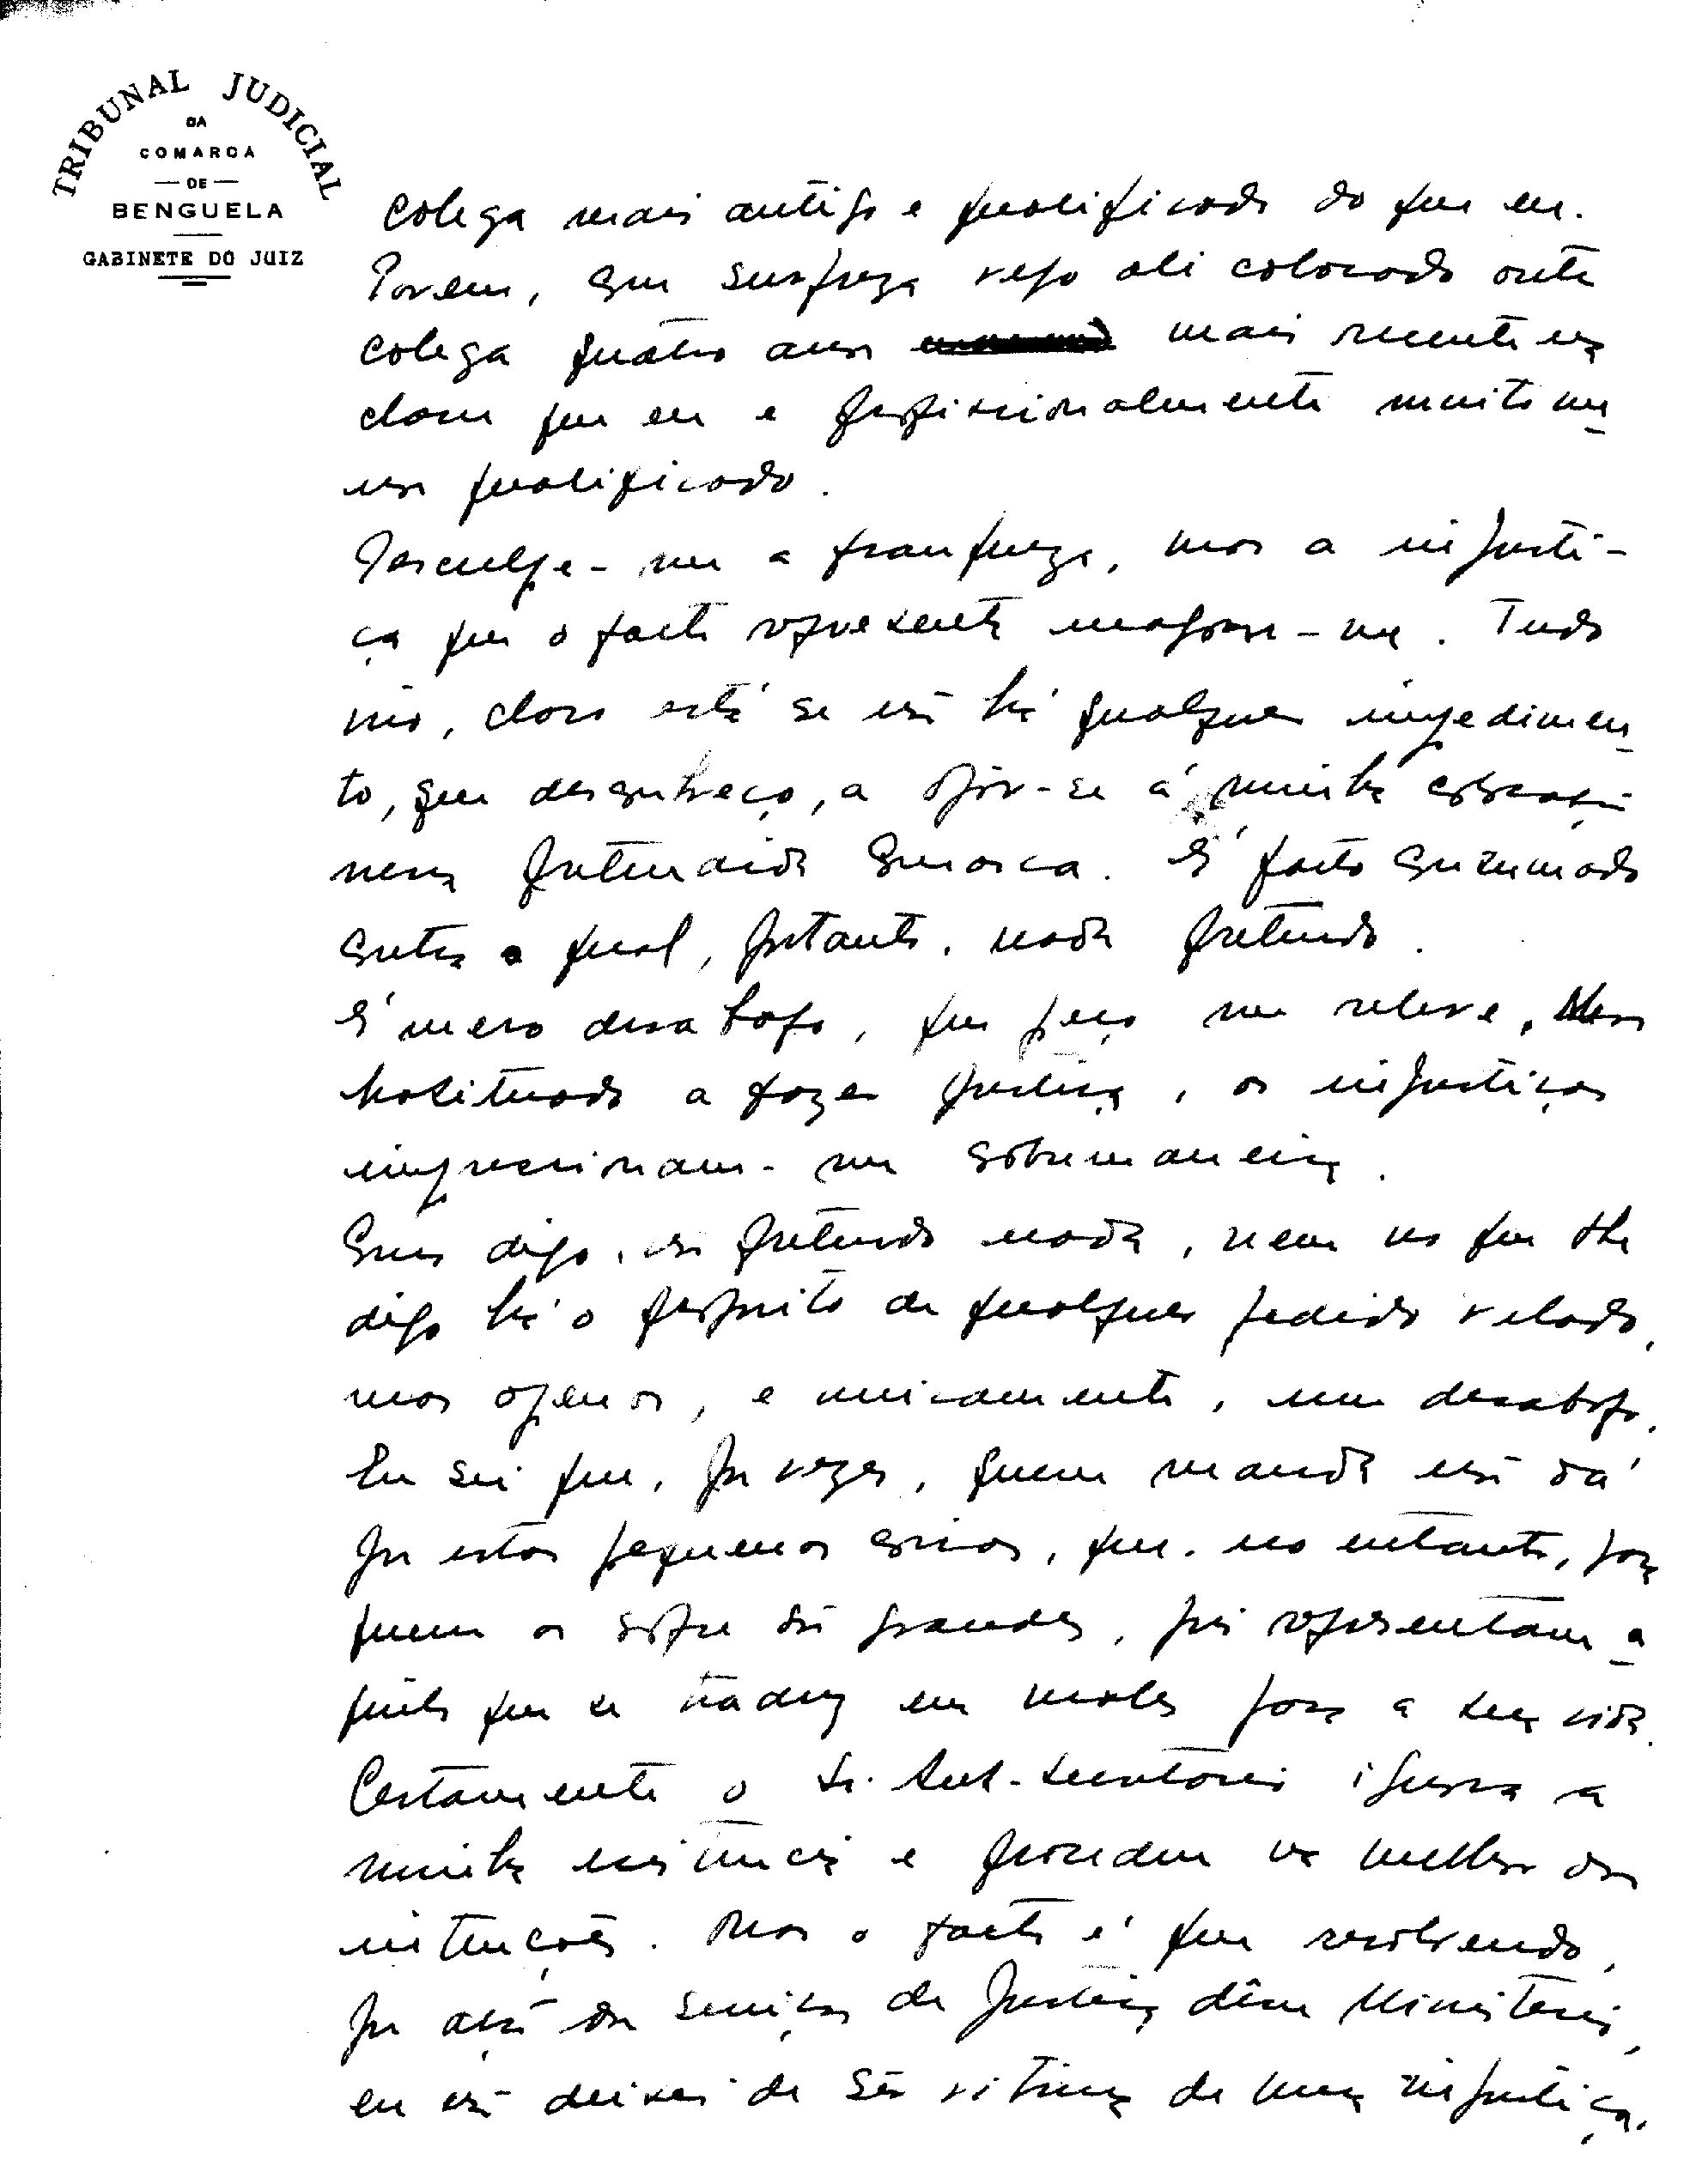 TRIBUNAL JUDICIAL
DA
COMARCA
DE
BENGUELA
GABINETE DO JUIZ
colega mais antigo e qualificado do que eu.
Porém, com surpresa vejo ali colocado outro
colega quatro anos mais recente na
classe que eu e profissionalmente muito me
nos qualificado.
Desculpe-me a franqueza, mas a injusti-
ça que o facto representa magoou-me. Tudo
isto, claro está se não há qualquer impedimen
to, que desconheço, a opôr-se à minha colocação
nessa pretendida comarca. É facto consumado
contra o qual, portanto, nada pretendo.
É mero desabafo, que peço me releve. Mas
habituado a fazer justiça, as injustiças
impressionam-me sobremaneira.
Como digo, não pretendo nada, nem no que lhe
digo há o propósito de qualquer pedido velado,
mas apenas, e unicamente, um desabafo.
Eu sei que, por vezes, quem manda não dá
por estas pequenas coisas, que, no entanto, para
quem as sofre são grandes, pois representam a
quilo que se traduz em males para a sua vida.
Certamente o Sr. Sub-Secretário ignora a
minha existência e procedeu na melhor das
intenções. Mas o facto é que resolvendo,
por acção dos serviços de Justiça dêsse Ministério,
eu não deixei de ser vitima de uma injustiça.